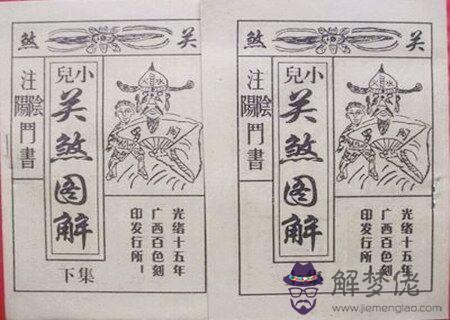 关煞
小兒
关煞图解
下集
注陰陽鬥書
光绪十五年
广西百色刻
印发行所！
关煞
小兒
关煞图解
注陰陽鬥書
光绪十五年
广西百色刻
印发行所
解梦佬
www.jiemenglao.com